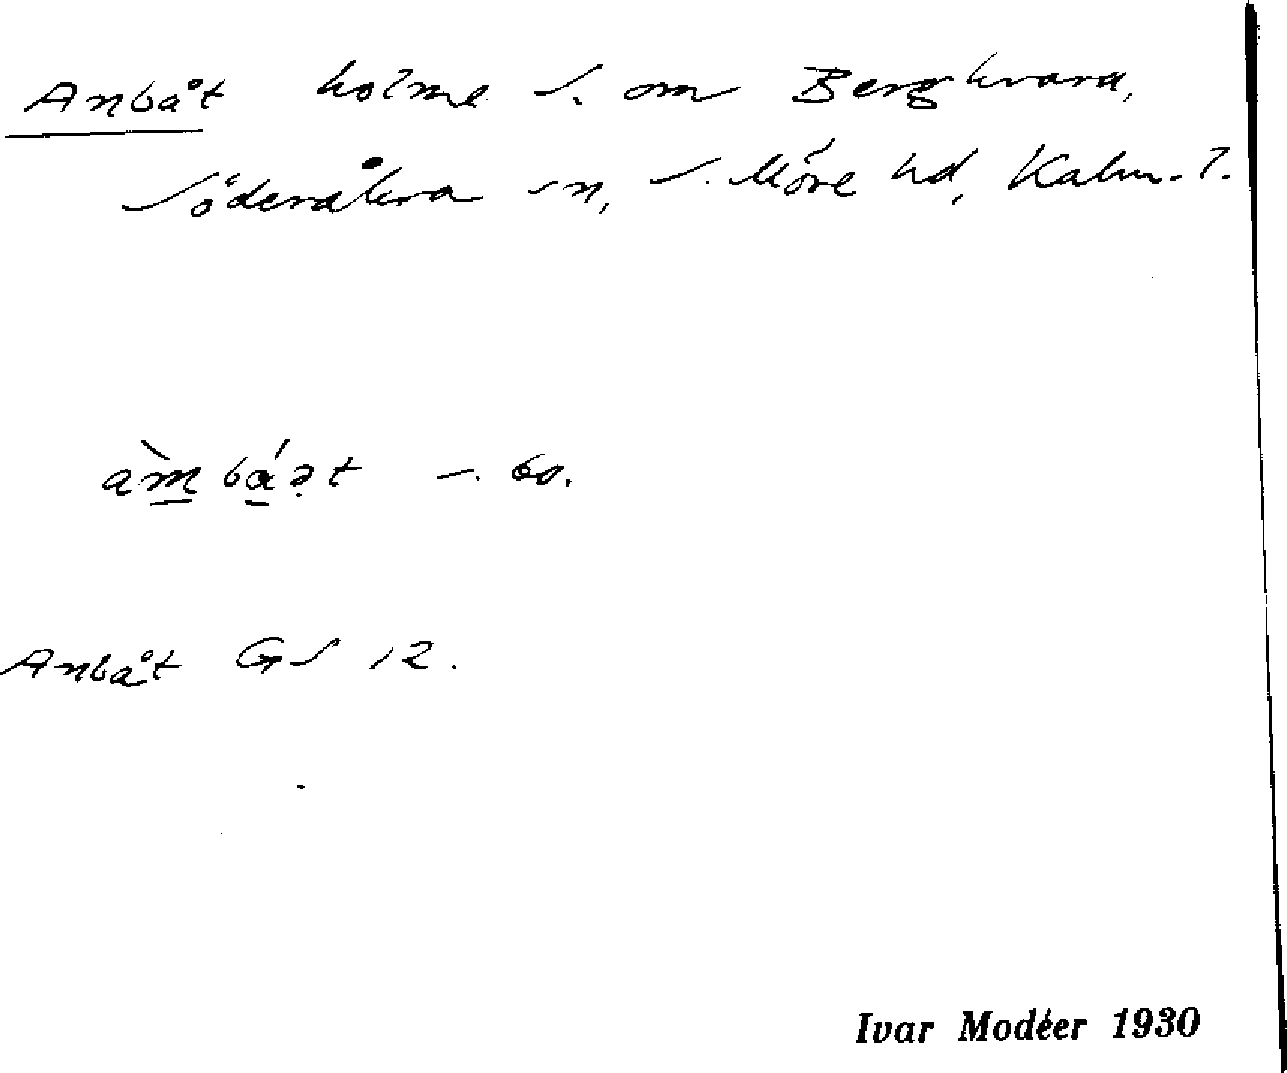 Anbåt holme S. om Bergkvara,
Söderåkra sn, S. Möre hd, Kalm. l.
àmbáət –. bo.
Anbåt GS 12.
Ivar Modéer 1930